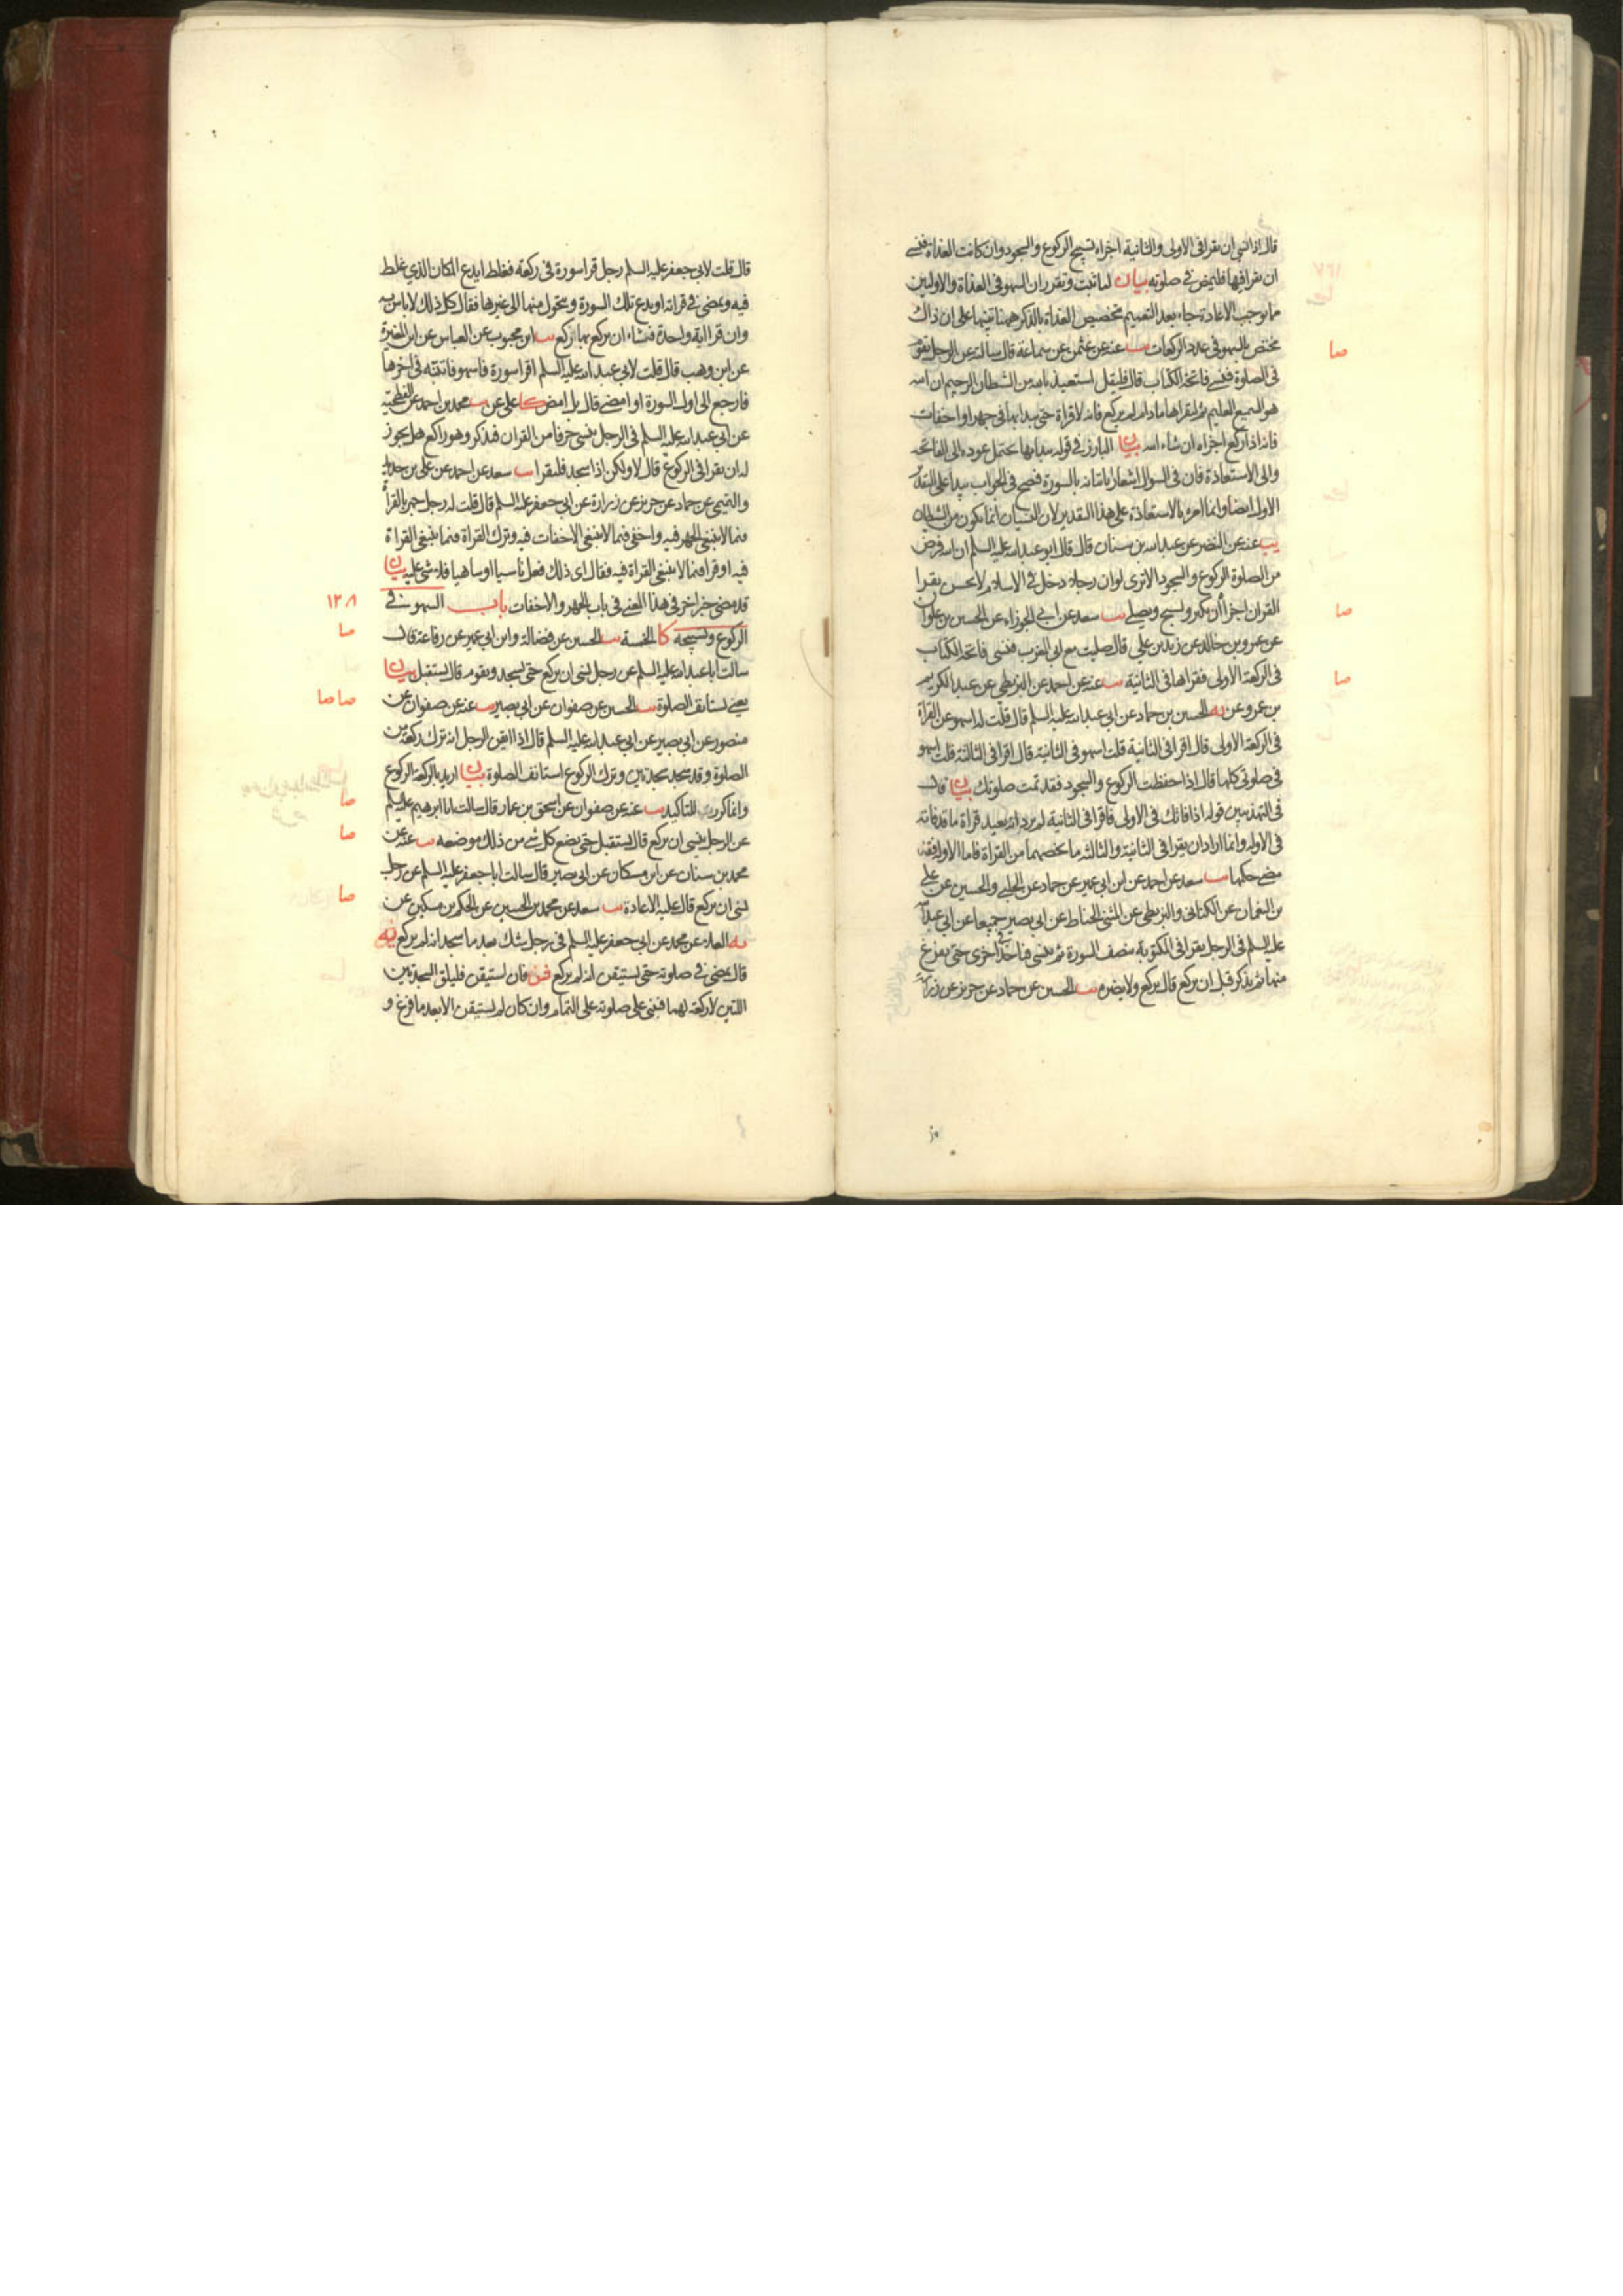 قال اذا نسي ان يقرا في الاولى والثانية اجزاه تسبيح الركوع والسجود وان كانت الغداة فنسي
ان يقرا فيها فليمض في صلوته بيان لما ثبت وتقرر ان السهو في الغداة والاوليين
مما يوجب الاعادة جاء بعد التعميم تخصيص الغداة بالذكر ههنا تنبيها على ان ذاك
مختص بالسهو في عدد الركعات يب عنه عن عثمن عن سماعة قال سالته عن الرجل يقوم
صا
في الصلوة فنسي فاتحة الكتاب قال فليقل استعيذ بالله من الشيطان الرجيم ان الله
هو السميع العليم ثم ليقراها ما دام لم يركع فانه لا قراة حتى يبدا بها في جهر او اخفات
فانه اذا ركع اجزاه ان شاء الله بيان البارز في قوله يبدا بها يحتمل عوده الى الفاتحة
والى الاستعاذة فان في السؤال اشعارا باتيانه بالسورة فصح في الجواب يبدا على التقدير
الاول ايضا وانما امره بالاستعاذة على هذا التقدير لان النسيان انما يكون من الشيطان
يب عنه عن النضر عن عبد الله بن سنان قال قال ابو عبد الله عليه السلم ان الله فرض
من الصلوة الركوع والسجود الا ترى لو ان رجلا دخل في الاسلام لا يحسن يقرا
القران اجزاه ان يكبر ويسبح ويصلي يب سعد عن ابي الجوزاء عن الحسين بن علوان
صا
عن عمرو بن خالد عن زيد بن علي قال صليت مع ابي المغرب فنسي فاتحة الكتاب
في الركعة الاولى فقراها في الثانية يب عنه عن احمد عن البزنطي عن عبد الكريم
صا
بن عمرو عن يه الحسين بن حماد عن ابي عبد الله عليه السلم قال قلت له اسهو عن القراة
في الركعة الاولى قال اقرا في الثانية قلت اسهو في الثانية قال اقرا في الثالثة قلت اسهو
في صلوتي كلها قال اذا حفظت الركوع والسجود فقد تمت صلوتك بيان قال
في التهذيبين قوله اذا فاتك في الاولى فاقرا في الثانية لم يرد انه يعيد قراة ما قد فاته
في الاولى وانما اراد ان يقرا في الثانية والثالثة ما يخصهما من القراة فاما الاولى فقد
مضى حكمها يب سعد عن احمد عن ابن ابي عمير عن حماد عن الحلبي والحسين عن علي
بن النعمان عن الكناني والبزنطي عن المثنى الحناط عن ابي بصير جميعا عن ابي عبد الله
عليه السلم في الرجل يقرا في المكتوبة بنصف السورة ثم ينسى فياخذ في اخرى حتى يفرغ
منها ثم يذكر قبل ان يركع قال يركع ولا يضره يب الحسين عن حماد عن حريز عن زرارة
قال قلت لابي جعفر عليه السلم رجل قرا سورة في ركعة فغلط ايدع المكان الذي غلط
فيه ويمضي في قراته او يدع تلك السورة ويتحول منها الى غيرها فقال كل ذلك لا باس به
وان قرا اية واحدة فشاء ان يركع بها ركع يب ابن محبوب عن العباس عن ابن المغيرة
عن ابن وهب قال قلت لابي عبد الله عليه السلم اقرا سورة فاسهو فانتبه في اخرها
فارجع الى اول السورة او امضي قال بل امض كا علي عن يب محمد بن احمد عن الفطحية
عن ابي عبد الله عليه السلم في الرجل ينسى حرفا من القران فذكر وهو راكع هل يجوز
له ان يقرا في الركوع قال لا ولكن اذا سجد فليقرا يب سعد عن احمد عن علي بن حديد
والتميمي عن حماد عن حريز عن زرارة عن ابي جعفر عليه السلم قال قلت له رجل جهر بالقراة
فيما لا ينبغي الجهر فيه واخفى فيما لا ينبغي الاخفات فيه وترك القراة فيما ينبغي القراة
فيه او قرا فيما لا ينبغي القراة فيه فقال اي ذلك فعل ناسيا او ساهيا فلا شي عليه بيان
قد مضى خبر اخر في هذا المعنى في باب الجهر والاخفات باب السهو في
١٢٨
الركوع وتسبيحه كا الخمسة يب الحسين عن فضالة وابن ابي عمير عن رفاعة قال
صا
سالت ابا عبد الله عليه السلم عن رجل نسي ان يركع حتى يسجد ويقوم قال يستقبل بيان
يعني يستانف الصلوة يب الحسين عن صفوان عن ابي بصير يب عنه عن صفوان عن
صا صا
منصور عن ابي بصير عن ابي عبد الله عليه السلم قال اذا ايقن الرجل انه ترك ركعة من
الصلوة وقد سجد سجدتين وترك الركوع استانف الصلوة بيان اريد بالركعة الركوع
وانما كررت للتاكيد يب عنه عن صفوان عن اسحق بن عمار قال سالت ابا ابرهيم عليه السلم
صا
عن الرجل ينسى ان يركع قال يستقبل حتى يضع كل شي من ذلك موضعه يب عنه عن
صا
محمد بن سنان عن ابن مسكان عن ابي بصير قال سالت ابا جعفر عليه السلم عن رجل
نسي ان يركع قال عليه الاعادة يب سعد عن محمد بن الحسين عن الحكم بن مسكين عن
صا
يه العلاء عن محمد عن ابي جعفر عليه السلم في رجل شك بعد ما سجد انه لم يركع يه
قال يمضي في صلوته حتى يستيقن انه لم يركع فان استيقن فليلق السجدتين
اللتين لا ركعة لهما فيبني على صلوته على التمام وان كان لم يستيقن الا بعد ما فرغ و